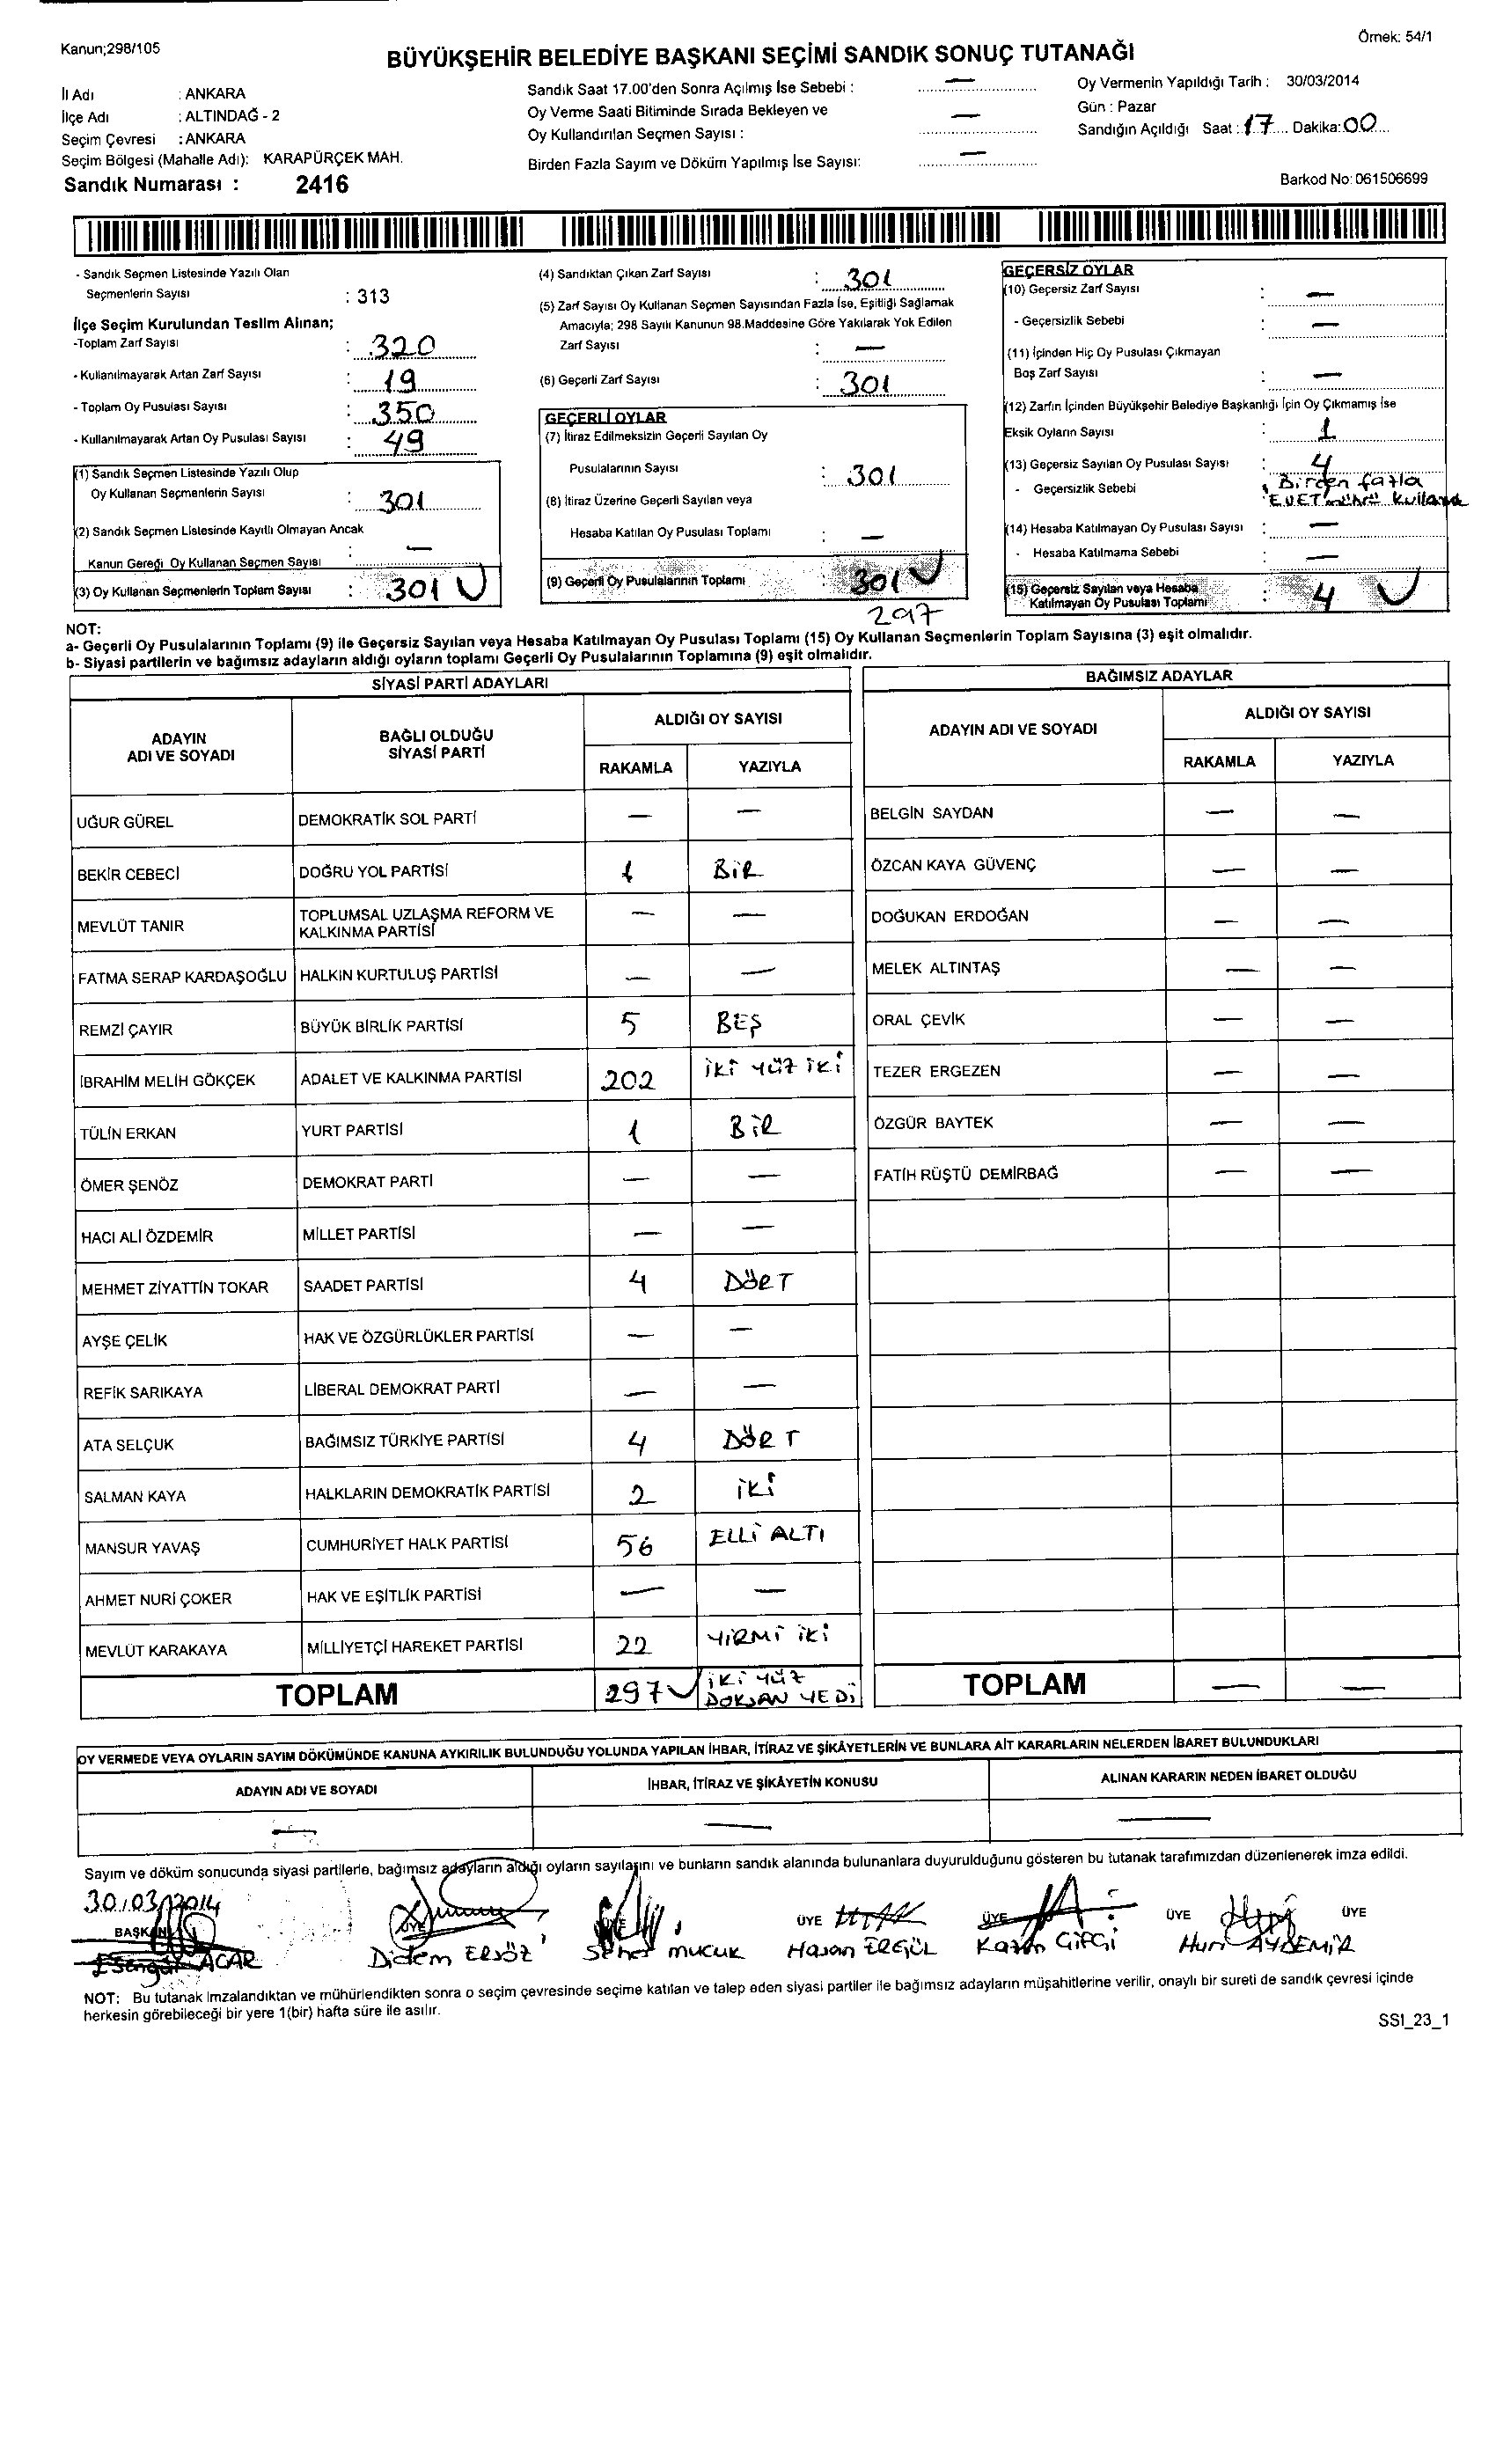 Kanun;298/105
Örnek: 54/1
BÜYÜKŞEHİR BELEDİYE BAŞKANI SEÇİMİ SANDIK SONUÇ TUTANAĞI
İl Adı : ANKARA
İlçe Adı : ALTINDAĞ - 2
Seçim Çevresi : ANKARA
Seçim Bölgesi (Mahalle Adı): KARAPÜRÇEK MAH.
Sandık Numarası : 2416
Sandık Saat 17.00'den Sonra Açılmış İse Sebebi : —
Oy Verme Saati Bitiminde Sırada Bekleyen ve
Oy Kullandırılan Seçmen Sayısı : —
Birden Fazla Sayım ve Döküm Yapılmış İse Sayısı: —
Oy Vermenin Yapıldığı Tarih : 30/03/2014
Gün : Pazar
Sandığın Açıldığı Saat : 17 Dakika: 00
Barkod No: 061506699
- Sandık Seçmen Listesinde Yazılı Olan
Seçmenlerin Sayısı : 313
İlçe Seçim Kurulundan Teslim Alınan;
-Toplam Zarf Sayısı : 320
- Kullanılmayarak Artan Zarf Sayısı : 19
- Toplam Oy Pusulası Sayısı : 350
- Kullanılmayarak Artan Oy Pusulası Sayısı : 49
(1) Sandık Seçmen Listesinde Yazılı Olup
Oy Kullanan Seçmenlerin Sayısı : 301
(2) Sandık Seçmen Listesinde Kayıtlı Olmayan Ancak
Kanun Gereği Oy Kullanan Seçmen Sayısı : —
(3) Oy Kullanan Seçmenlerin Toplam Sayısı : 301
(4) Sandıktan Çıkan Zarf Sayısı : 301
(5) Zarf Sayısı Oy Kullanan Seçmen Sayısından Fazla İse, Eşitliği Sağlamak
Amacıyla; 298 Sayılı Kanunun 98.Maddesine Göre Yakılarak Yok Edilen
Zarf Sayısı : —
(6) Geçerli Zarf Sayısı : 301
GEÇERLİ OYLAR
(7) İtiraz Edilmeksizin Geçerli Sayılan Oy
Pusulalarının Sayısı : 301
(8) İtiraz Üzerine Geçerli Sayılan veya
Hesaba Katılan Oy Pusulası Toplamı : —
(9) Geçerli Oy Pusulalarının Toplamı : 301
297
GEÇERSİZ OYLAR
(10) Geçersiz Zarf Sayısı : —
- Geçersizlik Sebebi : —
(11) İçinden Hiç Oy Pusulası Çıkmayan
Boş Zarf Sayısı : —
(12) Zarfın İçinden Büyükşehir Belediye Başkanlığı İçin Oy Çıkmamış İse
Eksik Oyların Sayısı : 1
(13) Geçersiz Sayılan Oy Pusulası Sayısı : 4
- Geçersizlik Sebebi : Birden fazla
EVET
(14) Hesaba Katılmayan Oy Pusulası Sayısı : —
- Hesaba Katılmama Sebebi : —
(15) Geçersiz Sayılan veya Hesaba
Katılmayan Oy Pusulası Toplamı : 4
NOT:
a- Geçerli Oy Pusulalarının Toplamı (9) ile Geçersiz Sayılan veya Hesaba Katılmayan Oy Pusulası Toplamı (15) Oy Kullanan Seçmenlerin Toplam Sayısına (3) eşit olmalıdır.
b- Siyasi partilerin ve bağımsız adayların aldığı oyların toplamı Geçerli Oy Pusulalarının Toplamına (9) eşit olmalıdır.
SİYASİ PARTİ ADAYLARI
ADAYIN ADI VE SOYADI
BAĞLI OLDUĞU SİYASİ PARTİ
ALDIĞI OY SAYISI
RAKAMLA YAZIYLA
UĞUR GÜREL DEMOKRATİK SOL PARTİ — —
BEKİR CEBECİ DOĞRU YOL PARTİSİ 1 BİR
MEVLÜT TANIR TOPLUMSAL UZLAŞMA REFORM VE KALKINMA PARTİSİ — —
FATMA SERAP KARDAŞOĞLU HALKIN KURTULUŞ PARTİSİ — —
REMZİ ÇAYIR BÜYÜK BİRLİK PARTİSİ 5 BEŞ
İBRAHİM MELİH GÖKÇEK ADALET VE KALKINMA PARTİSİ 202 İKİ YÜZ İKİ
TÜLİN ERKAN YURT PARTİSİ 1 BİR
ÖMER ŞENÖZ DEMOKRAT PARTİ — —
HACI ALİ ÖZDEMİR MİLLET PARTİSİ — —
MEHMET ZİYATTİN TOKAR SAADET PARTİSİ 4 DÖRT
AYŞE ÇELİK HAK VE ÖZGÜRLÜKLER PARTİSİ — —
REFİK SARIKAYA LİBERAL DEMOKRAT PARTİ — —
ATA SELÇUK BAĞIMSIZ TÜRKİYE PARTİSİ 4 DÖRT
SALMAN KAYA HALKLARIN DEMOKRATİK PARTİSİ 2 İKİ
MANSUR YAVAŞ CUMHURİYET HALK PARTİSİ 56 ELLİ ALTI
AHMET NURİ ÇOKER HAK VE EŞİTLİK PARTİSİ — —
MEVLÜT KARAKAYA MİLLİYETÇİ HAREKET PARTİSİ 22 YİRMİ İKİ
TOPLAM 297 İKİ YÜZ DOKSAN YEDİ
BAĞIMSIZ ADAYLAR
ADAYIN ADI VE SOYADI
ALDIĞI OY SAYISI
RAKAMLA YAZIYLA
BELGİN SAYDAN — —
ÖZCAN KAYA GÜVENÇ — —
DOĞUKAN ERDOĞAN — —
MELEK ALTINTAŞ — —
ORAL ÇEVİK — —
TEZER ERGEZEN — —
ÖZGÜR BAYTEK — —
FATİH RÜŞTÜ DEMİRBAĞ — —
TOPLAM — —
OY VERMEDE VEYA OYLARIN SAYIM DÖKÜMÜNDE KANUNA AYKIRILIK BULUNDUĞU YOLUNDA YAPILAN İHBAR, İTİRAZ VE ŞİKÂYETLERİN VE BUNLARA AİT KARARLARIN NELERDEN İBARET BULUNDUKLARI
ADAYIN ADI VE SOYADI İHBAR, İTİRAZ VE ŞİKÂYETİN KONUSU ALINAN KARARIN NEDEN İBARET OLDUĞU
— — —
Sayım ve döküm sonucunda siyasi partilerle, bağımsız adayların aldığı oyların sayılarını ve bunların sandık alanında bulunanlara duyurulduğunu gösteren bu tutanak tarafımızdan düzenlenerek imza edildi.
30/03/2014
BAŞKAN ÜYE ÜYE ÜYE ÜYE ÜYE ÜYE
ACAR Didem ERSÖZ mucuk Hasan ERGÜL AYDEMİR
NOT: Bu tutanak imzalandıktan ve mühürlendikten sonra o seçim çevresinde seçime katılan ve talep eden siyasi partiler ile bağımsız adayların müşahitlerine verilir, onaylı bir sureti de sandık çevresi içinde
herkesin görebileceği bir yere 1(bir) hafta süre ile asılır.
SSI_23_1